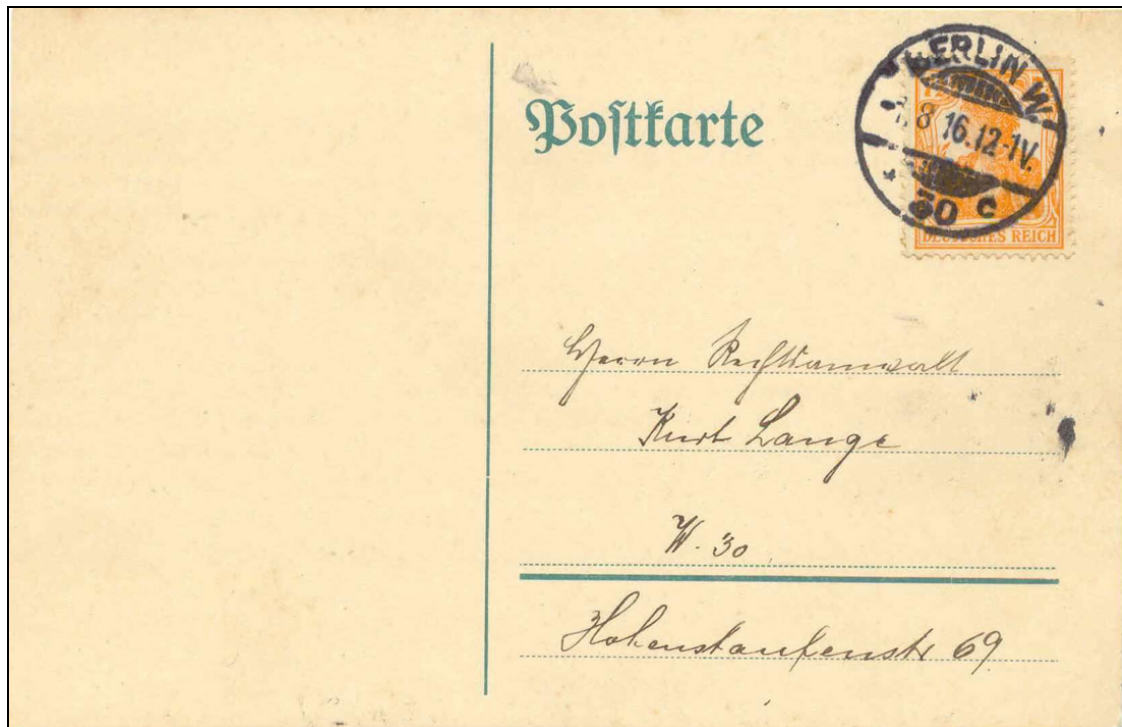 Postkarte
BERLIN W.
8 16.12-1V.
30 c
DEUTSCHES REICH
Herrn Rechtsanwalt
Kurt Lange
W. 30
Hohenstaufenstr 69